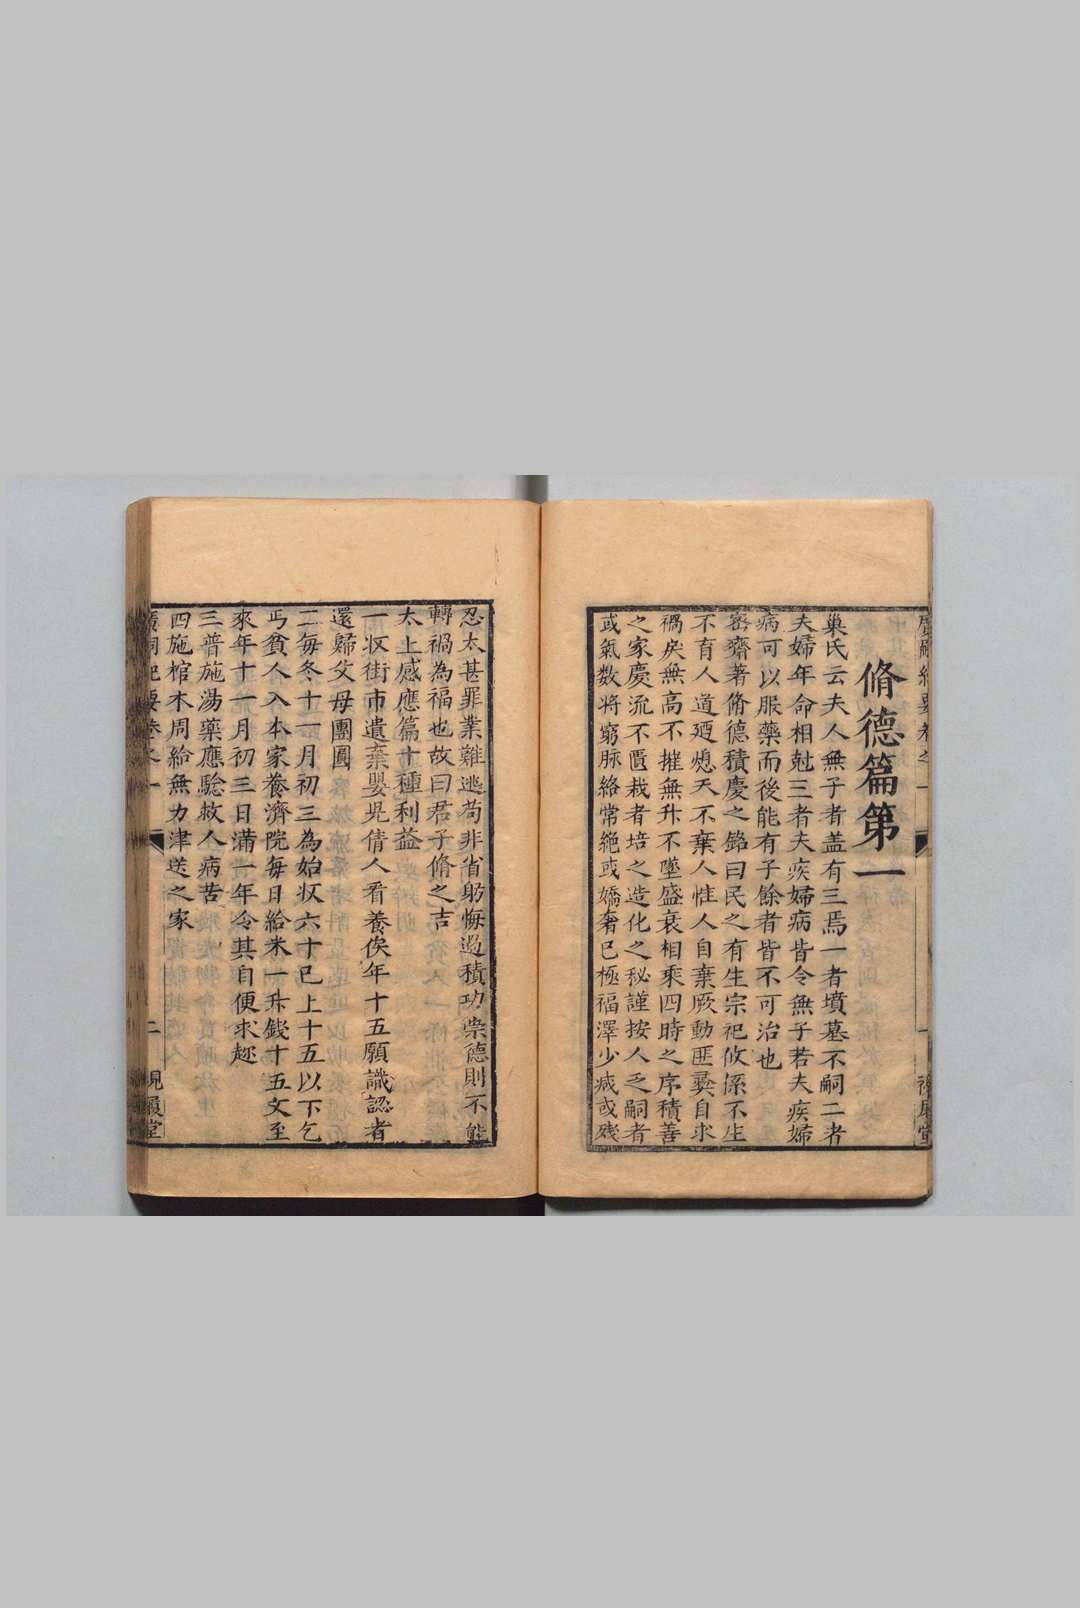 脩德篇第一
巢氏云夫人無子者盖有三焉一者墳墓不嗣二者
夫婦年命相尅三者夫疾婦病皆令無子若夫疾婦
病可以服藥而後能有子餘者皆不可治也
密齋著脩德積慶之銘曰民之有生宗祀攸係不生
不育人道廼熄天不棄人惟人自棄厥動匪彜自求
禍戾無高不摧無升不墜盛衰相乘四時之序積善
之家慶流不匱栽者培之造化之秘謹按人乏嗣者
或氣数将窮脉絡常絶或嬌奢已極福澤少减或殘
忍太甚罪業難逃苟非省躬悔過積功累德則不能
轉禍為福也故曰君子脩之吉
太上感應篇十種利益
一收街市遺棄嬰兒倩人看養俟年十五願識認者
還歸父母團圓
二每冬十一月初三為始收六十已上十五以下乞
丐貧人入本家養濟院每日給米一升錢十五文至
來年十一月初三日滿一年令其自便求趂
三普施湯藥應驗救人病苦
四施棺木周給無力津送之家
廣嗣紀要卷之一
二